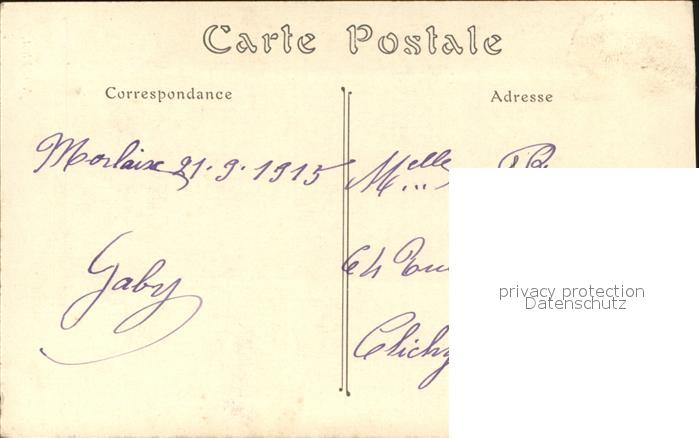 Carte Postale
Correspondance
Adresse
Morlaix 21.9.1915
Melle
Gaby
64 Rue
Clichy
privacy protection
Datenschutz